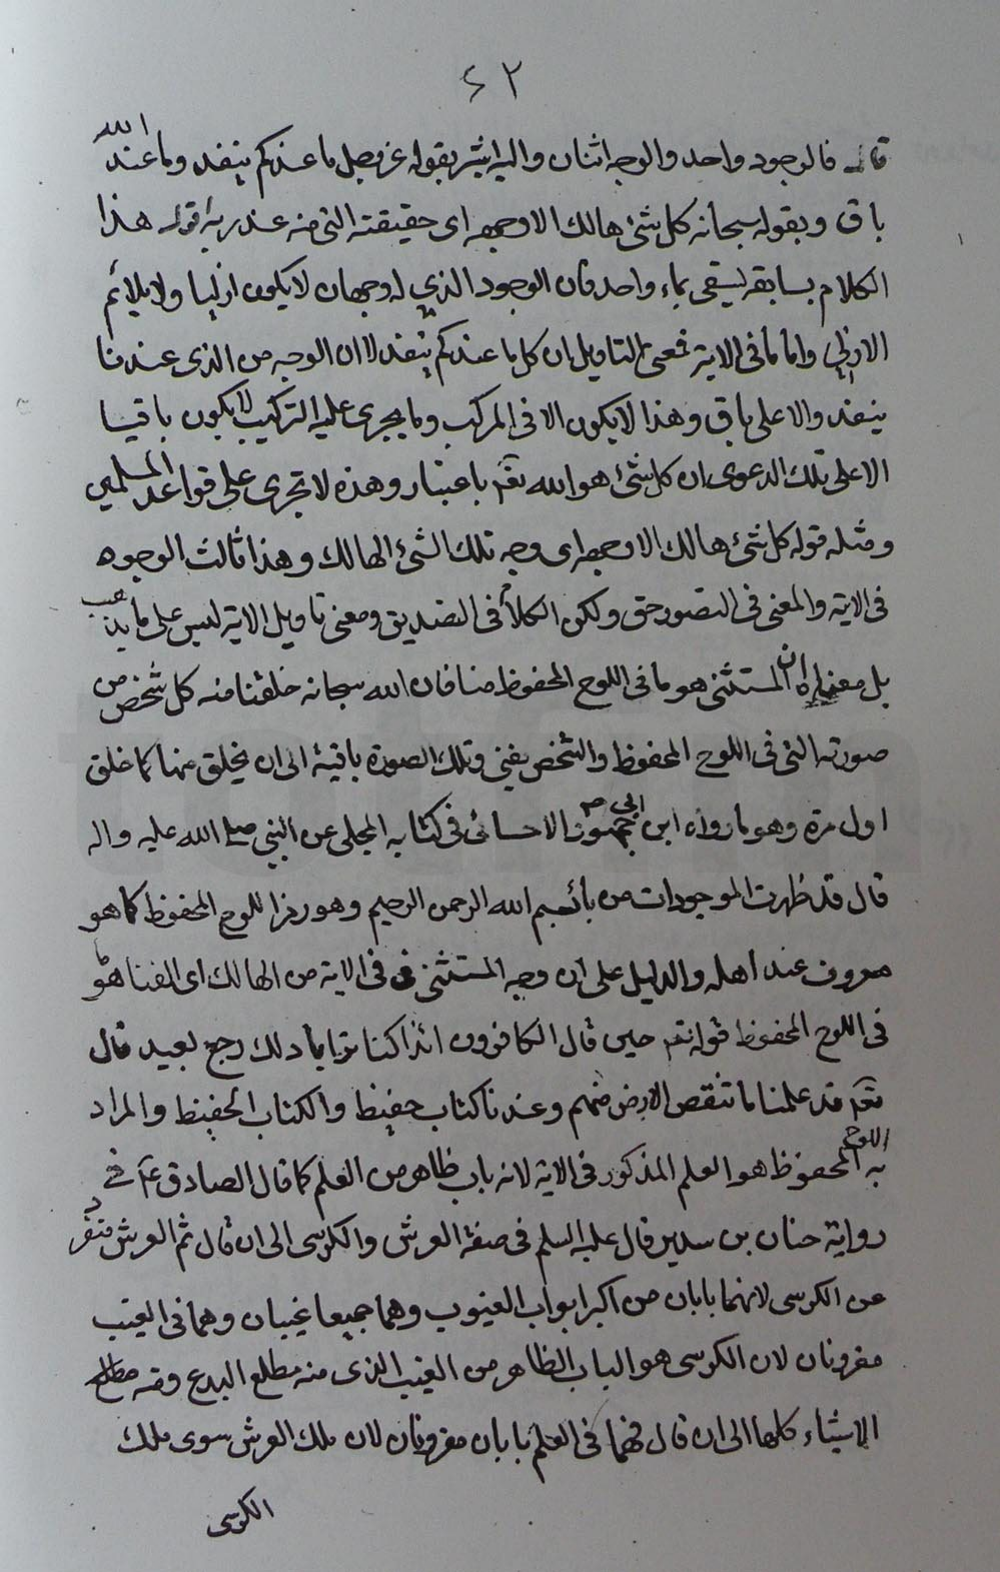 ٦٢
قال فالوجود واحد والوجه اثنان واليه اشير بقوله عز وجل ما عندكم ينفد وما عند الله
باق وبقوله سبحانه كل شئ هالك الا وجهه اى حقيقته التى منه عند ربه اقول هذا
الكلام بسابقه يسقى بماء واحد فان الوجود الذي له وجهان لا يكون ازليا ولا يلائم
الازلي واما ما فى الاية فمعنى التاويل ان كل ما عندكم ينفد لا ان الوجه من الذى عندنا
ينفد والاعلى باق وهذا لا يكون الا فى المركب وما يجرى عليه التركيب لا يكون باقيا
الا على تلك الدعوى ان كل شئ هو الله تعم باعتبار وهذه لا تجرى على قواعد المسلمين
ومثله قوله كل شئ هالك الا وجهه اى وجه تلك الشئ الهالك وهذا ثالث الوجوه
فى الاية والمعنى فى التصور حق ولكن الكلام فى التصديق ومعنى تاويل الاية ليس على ما يذهب
بل معناه ان المستثنى هو ما فى اللوح المحفوظ منا فان الله سبحانه خلقنا منه كل شخص من
صورته التى فى اللوح المحفوظ والشخص يفنى وتلك الصورة باقية الى ان يخلق منها كما خلق
اول مرة وهو ما رواه ابن ابي جمهور الاحسائى فى كتابه المجلى عن النبي صلى الله عليه واله
قال قد ظهرت الموجودات من باء بسم الله الرحمن الرحيم وهو رمز اللوح المحفوظ كما هو
معروف عند اهله والدليل على ان وجه المستثنى فى الاية من الهالك اى الفنا هو
فى اللوح المحفوظ قوله تعم حين قال الكافرون ائذا كنا ترابا ذلك رجع بعيد قال
تعم قد علمنا ما تنقص الارض منهم وعندنا كتاب حفيظ والكتاب الحفيظ والمراد
به اللوح المحفوظ هو العلم المذكور فى الاية لانه باب ظاهر من العلم كما قال الصادق ع فى
رواية حنان بن سدير قال عليه السلم فى صفة العرش والكرسى الى ان قال ثم العرش متفرد
عن الكرسى لانهما بابان من اكبر ابواب الغيوب وهما جميعا غيبان وهما فى الغيب
مقرونان لان الكرسى هو الباب الظاهر من الغيب الذى منه مطلع البدع ومنه
الاشياء كلها الى ان قال فهما فى العلم بابان مقرونان لان ملك العرش سوى ملك
الكرسى